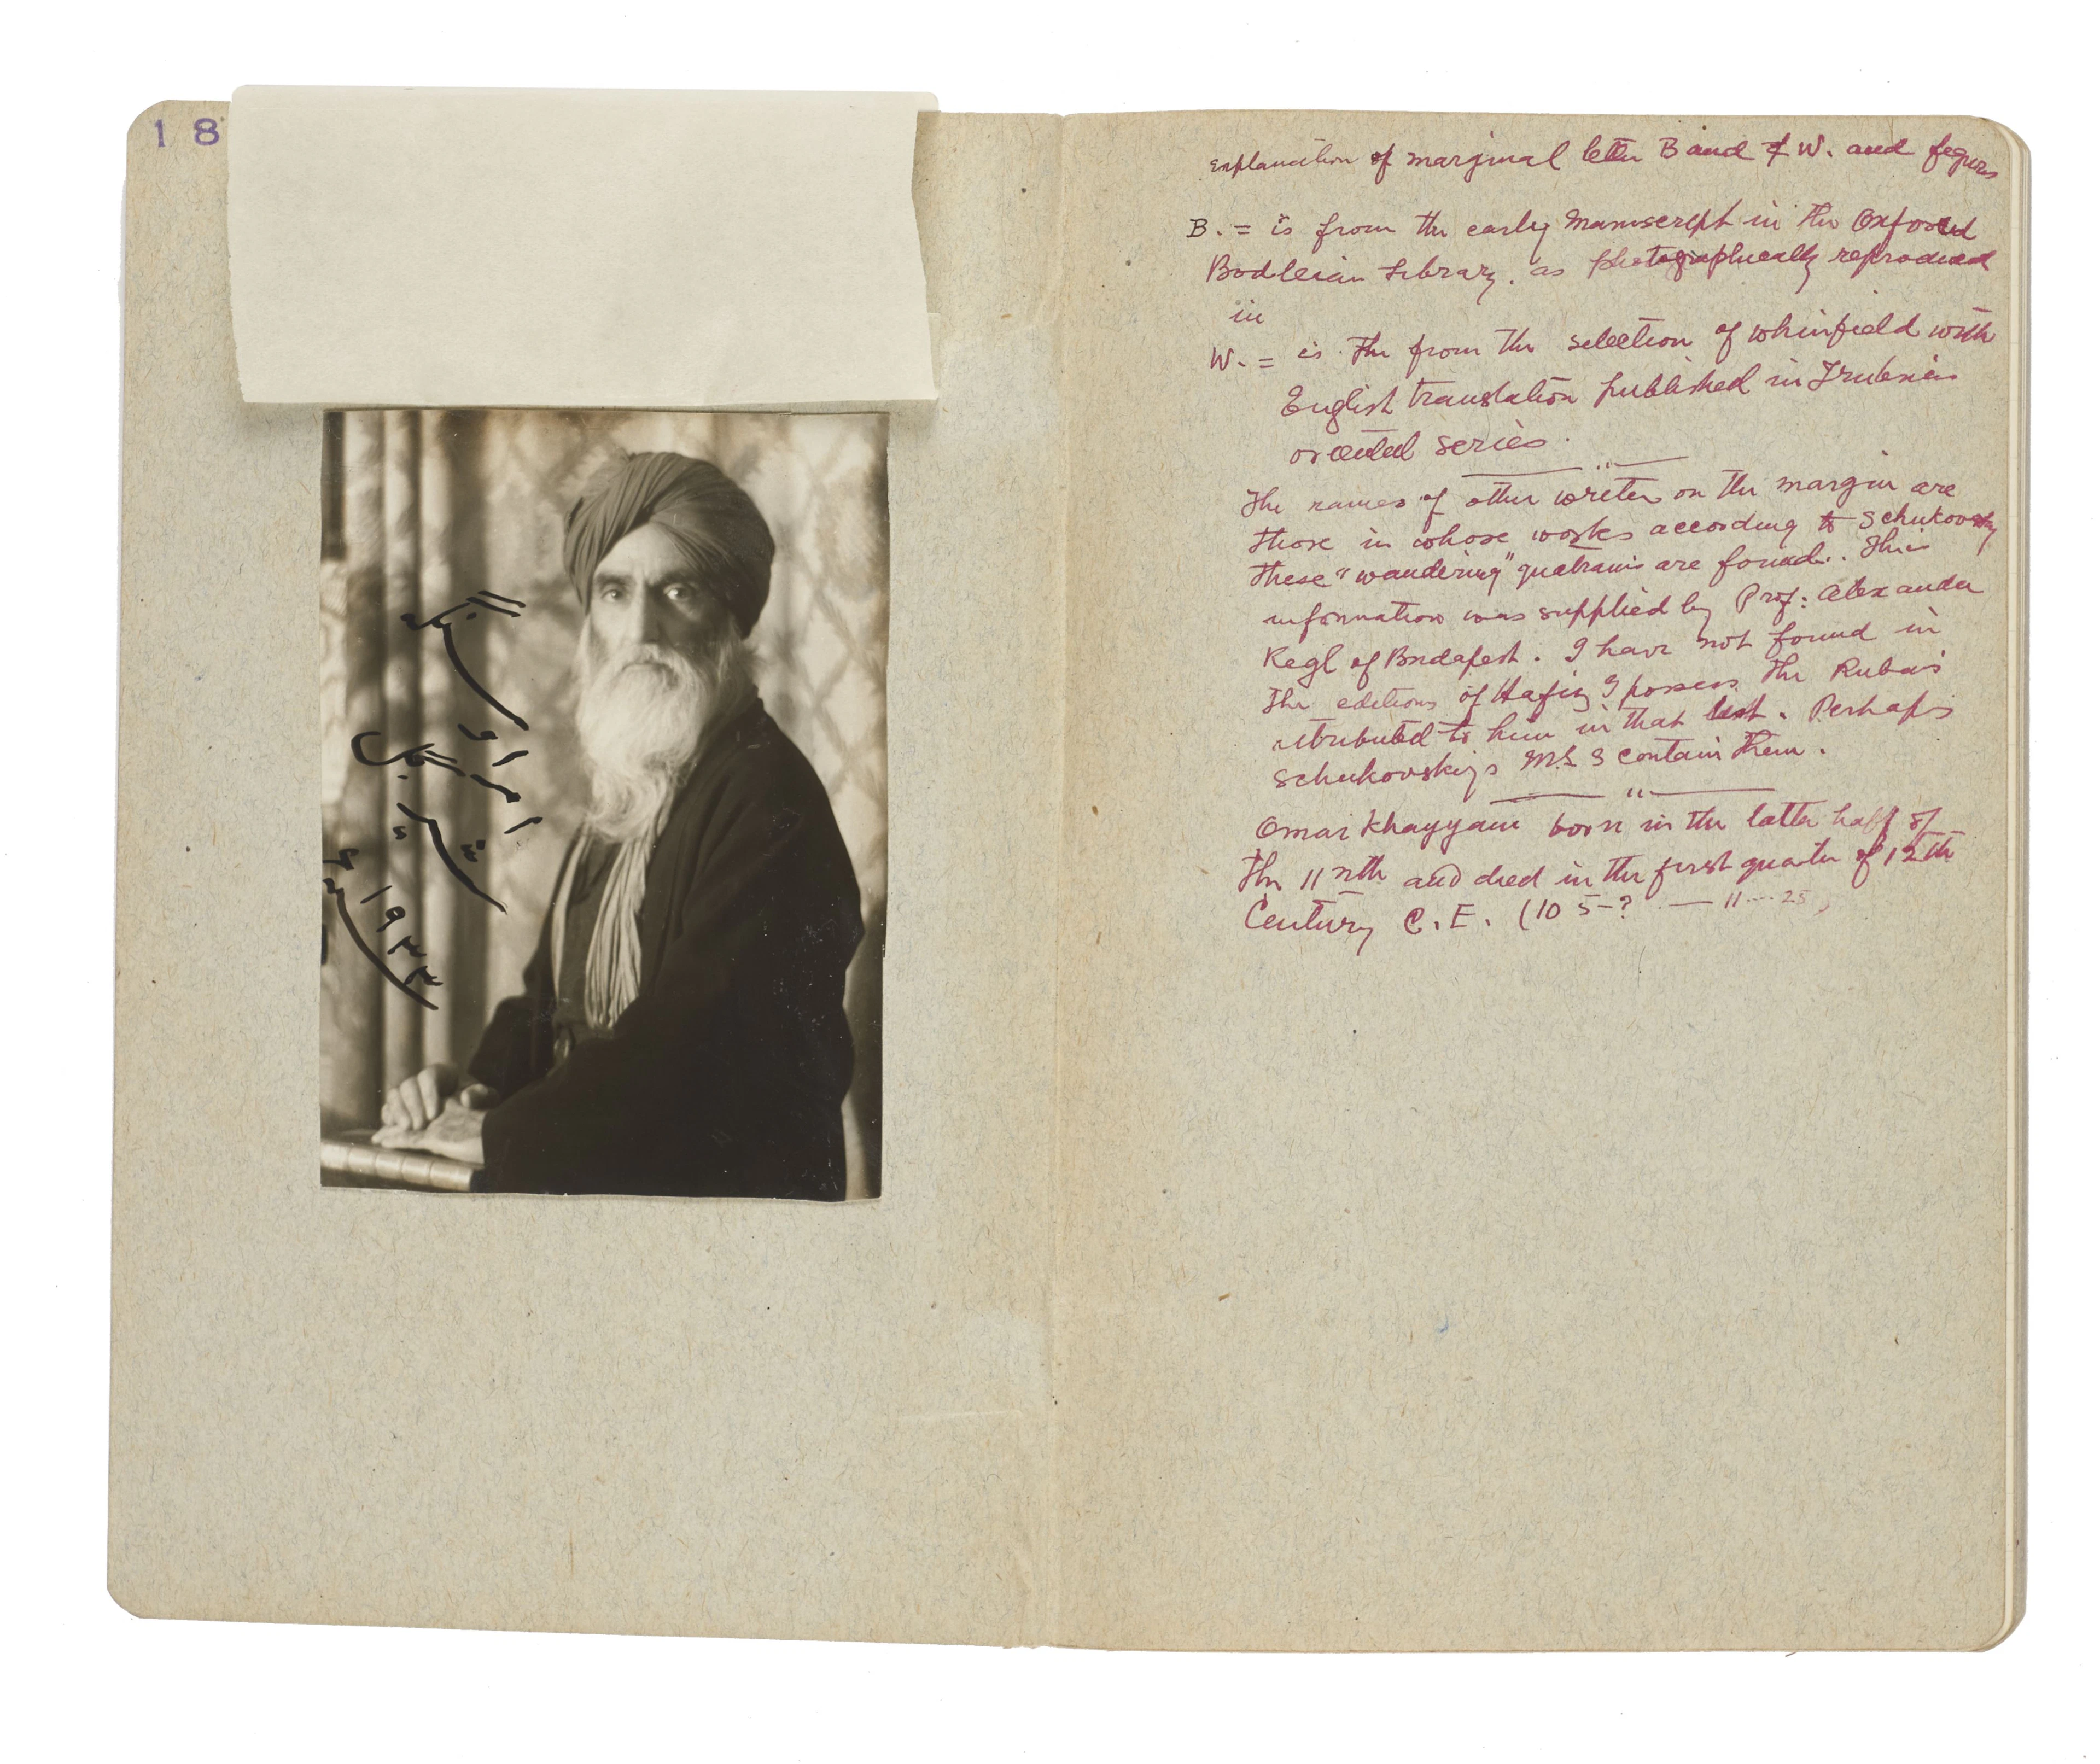 18
امراو
شیرگل
Explanation of marginal letter B and & W. and figures
B. = is from the early Manuscript in the Oxford
Bodleian Library. as photographically reproduced
in
W. = is The from the selection of Whinfield with
English translation published in Trubner's
oriental series.
The names of other writers on the margin are
those in whose works according to Schukovsky
these "wandering" quatrains are found. This
information was supplied by Prof: Alexander
Kegl of Budapest. I have not found in
the editions of Hafiz I possess the Rubais
attributed to him in that list. Perhaps
Schukovsky's MSS contain them.
Omar Khayyam born in the latter half of
the 11nth and died in the first quarter of 12th
Century C.E. (105-? — 11...25)